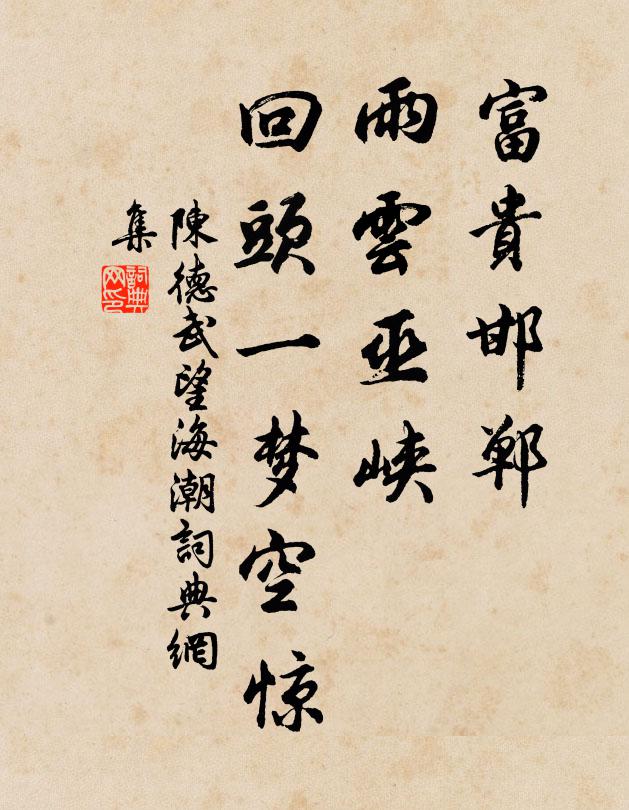 富貴邯鄲
雨雲巫峽
回頭一梦空惊
陳德武望海潮詞典網
集
詞典
网印